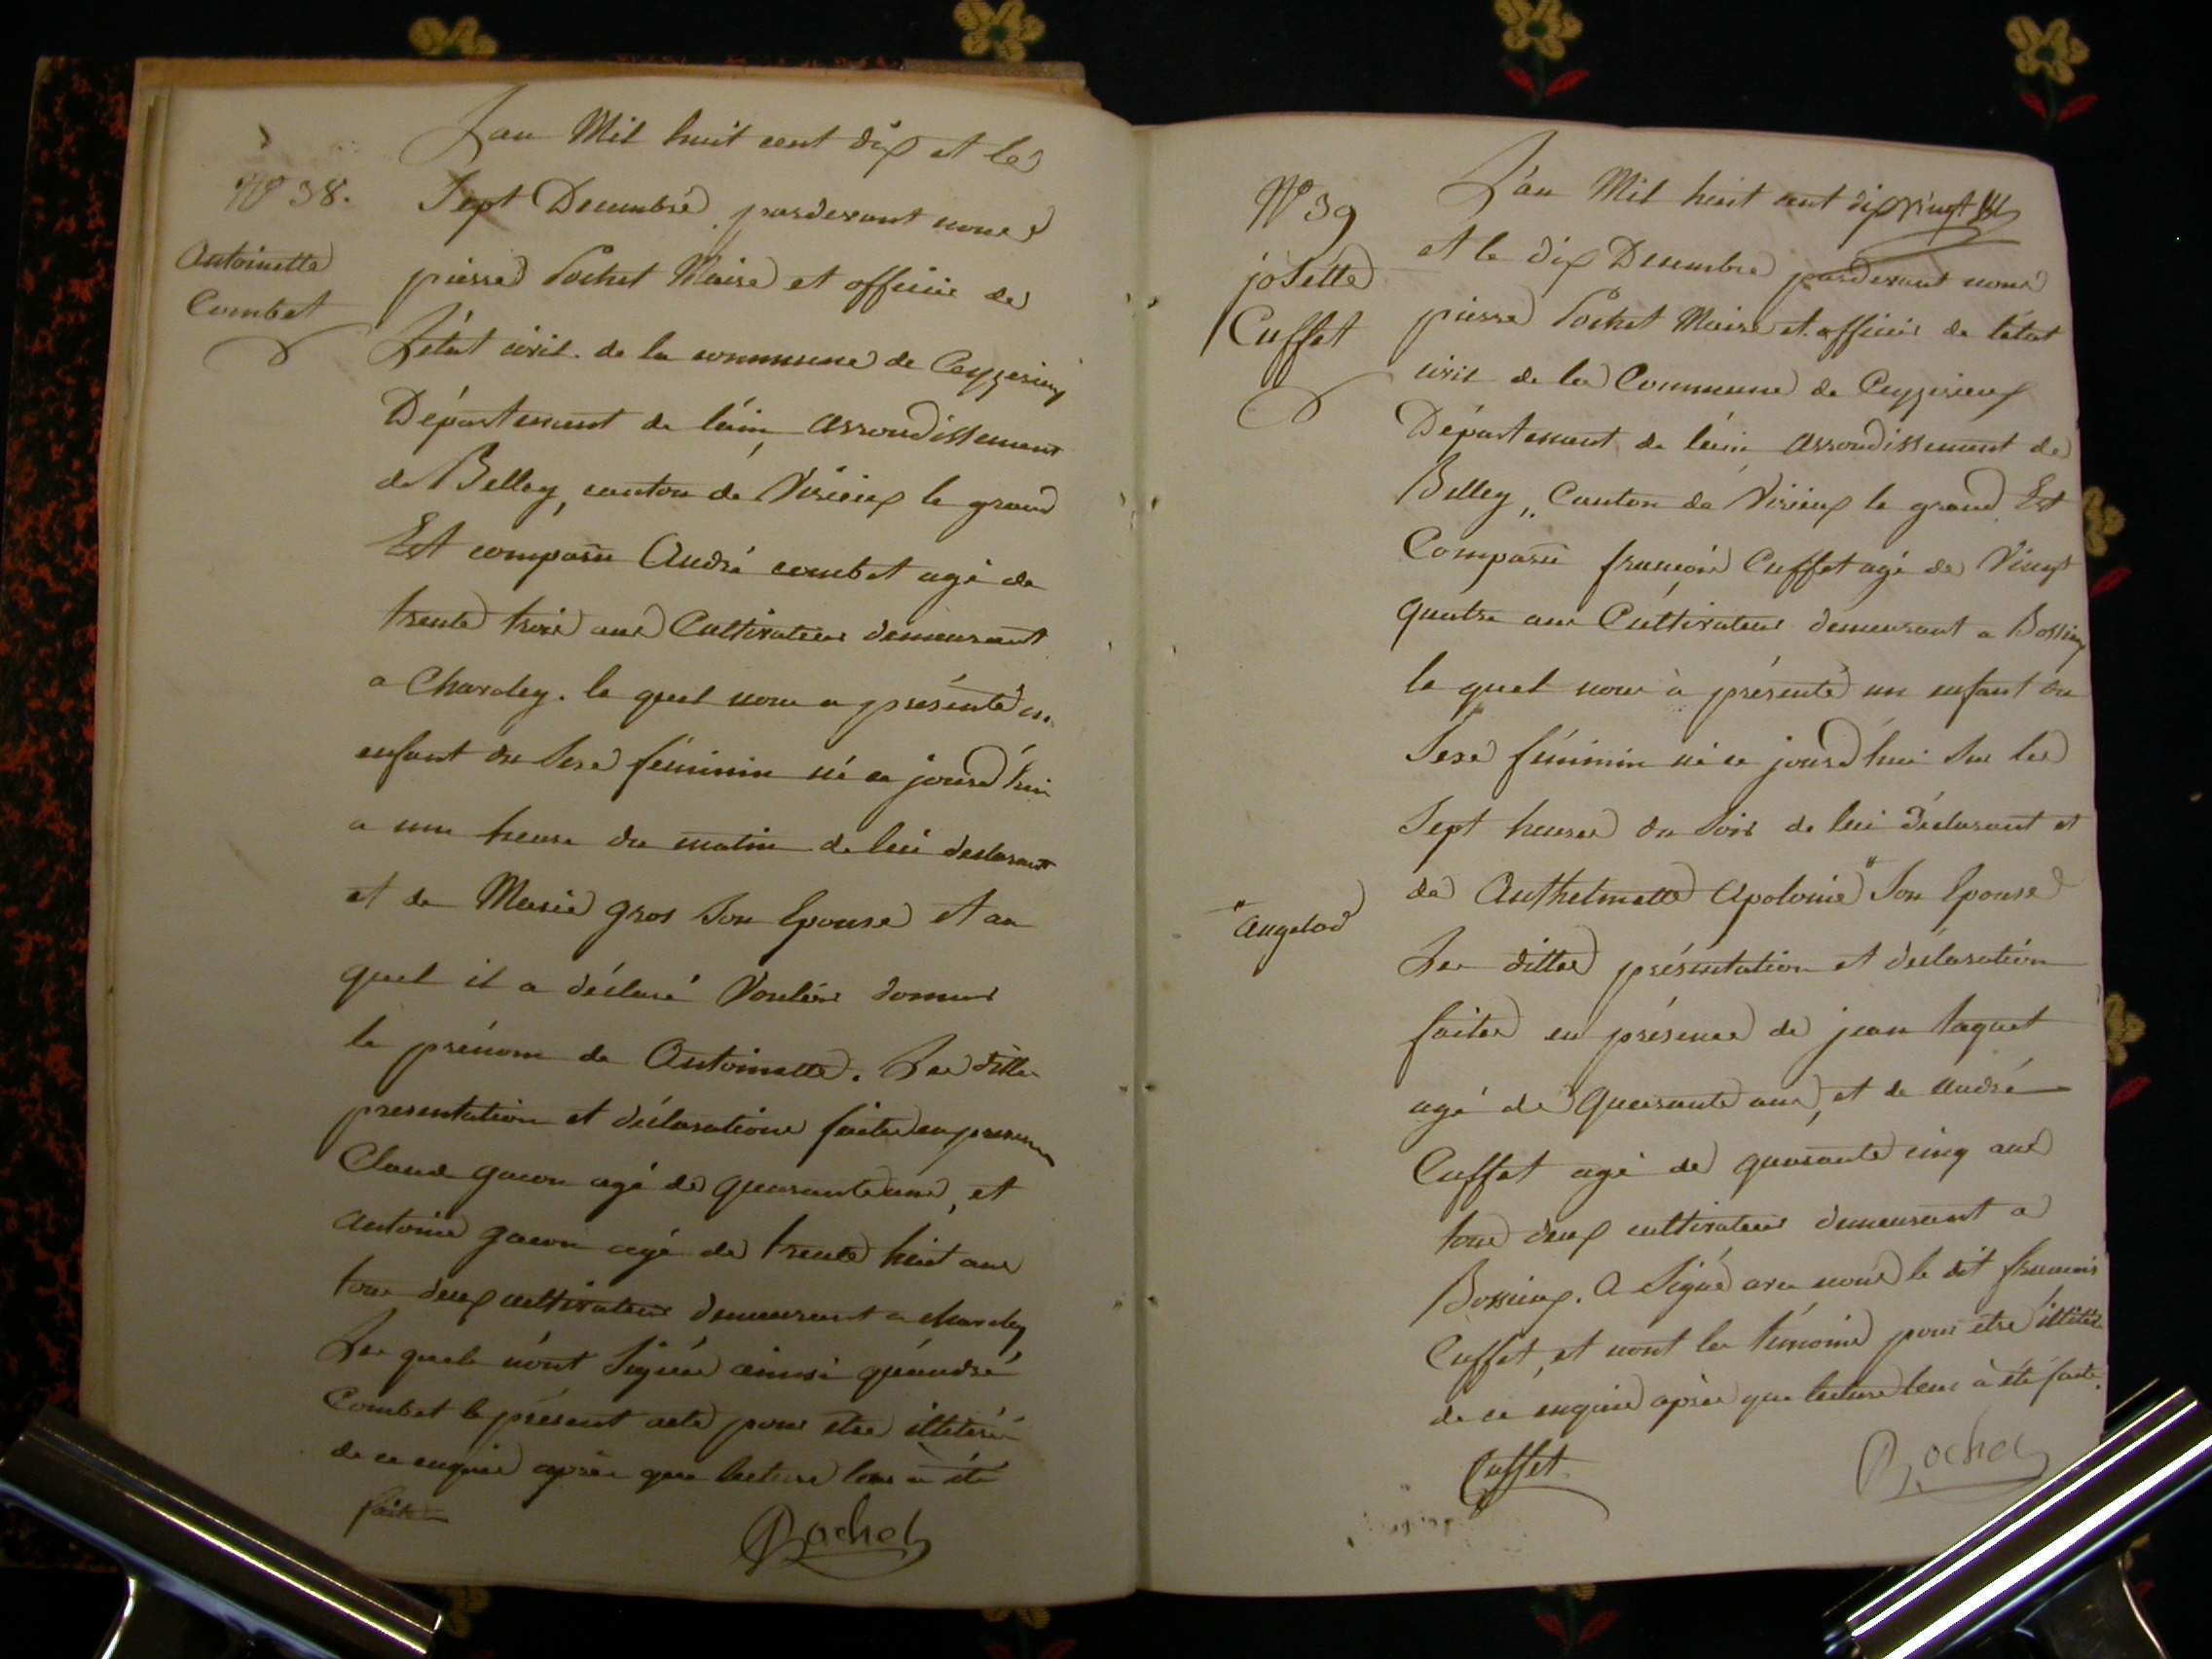 N° 38.
Antoinette
Combet
L'an Mil huit cent dix et le
Sept Decembre pardevant nous
pierre Pochet Maire et officier de
L'état civil de la commune de Ceyzerieu
Département de l'ain arrondissement
de Belley, canton de Virieux le grand
Est comparu André combet agé de
trente trois ans Cultivateur demeurant
a Chavoley. le quel nous a présenté un
enfant du Sexe féminin né ce jourd'hui
a une heure du matin de lui declarant
et de Marie gros Son Epouse et au
quel il a déclaré Vouloir donner
le prénom de Antoinette. Les dittes
presentation et déclarations faites en presence
Claude gacon agé de quarante ans, et
antoine gacon agé de trente huit ans
tous deux cultivateurs demeurant a chavoley
Les quels n'ont Signés ainsi qu'andré
Combet le présent acte pour etre illetérés
de ce enquis après que lecture leur a été
faite
Pochet
N° 39
josette
Cuffet
L'an Mil huit cent dix
et le dix Decembre pardevant nous
pierre Pochet Maire et officier de l'état
civil de la Commune de Ceyzerieux
Département de l'ain arrondissement de
Belley, Canton de Virieux le grand Est
Comparu françois Cuffet agé de Vingt
quatre ans Cultivateur demeurant a Bossieu
le quel nous à présenté un enfant du
Sexe féminin né ce jourd'hui Sur les
Sept heures du Soir de lui déclarant et
de Anthelmette Apolonie " Son Epouse
" angelod
Les dittes présentation et déclaration
faites en présence de jean taquet
agé de quarante ans, et de andré
Cuffet agé de quarante cinq ans
tous deux cultivateurs demeurant a
Bossieux. A Signé avec nous le dit francois
Cuffet, et nont les témoins pour etre illitérés
de ce enquis après que lecture leur à été faite.
Cuffet
Pochet